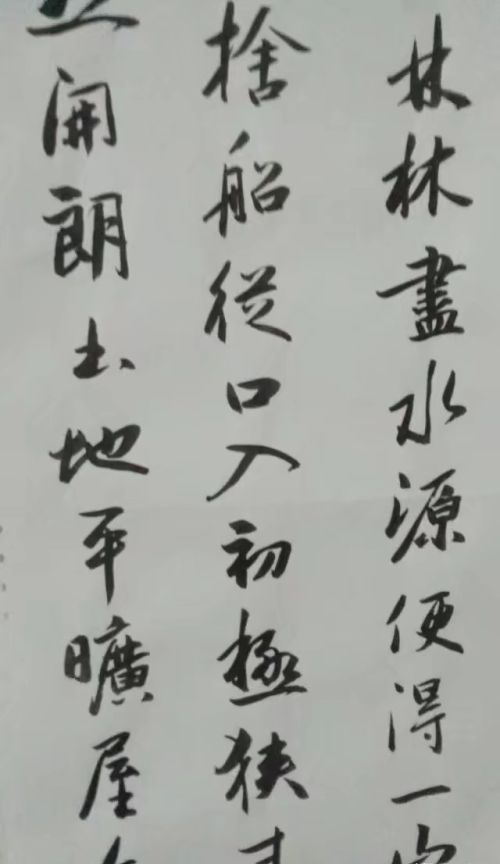 林林盡水源便得一山
捨船從口入初極狹才
開朗土地平曠屋